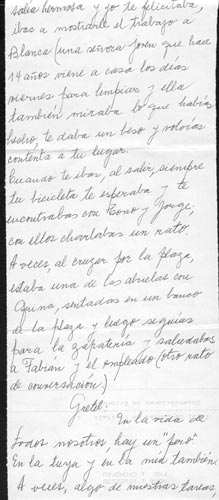 salía hermosa y yo te felicitaba,
ibas a mostrarle el trabajo a
Blanca (una señora joven que hace
14 años viene a casa los días
viernes para limpiar) y ella
también miraba lo que habías
hecho, te daba un beso y volvías
contenta a tu lugar.
Cuando te ibas, al salir, siempre
tu bicicleta te esperaba y te
encontrabas con Tono y Jorge;
con ellos charlabas un rato.
A veces, al cruzar por la plaza,
estaba una de las abuelas con
sentadas en un banco
de la plaza y luego seguías
para la zapatería y saludabas
a Fabián y el empleado (otro rato
de conversación.)
Gretel: En la vida de
todos nosotros, hay un "pero"
En la tuya y en la mía también.
A veces, algo de nuestras tareas